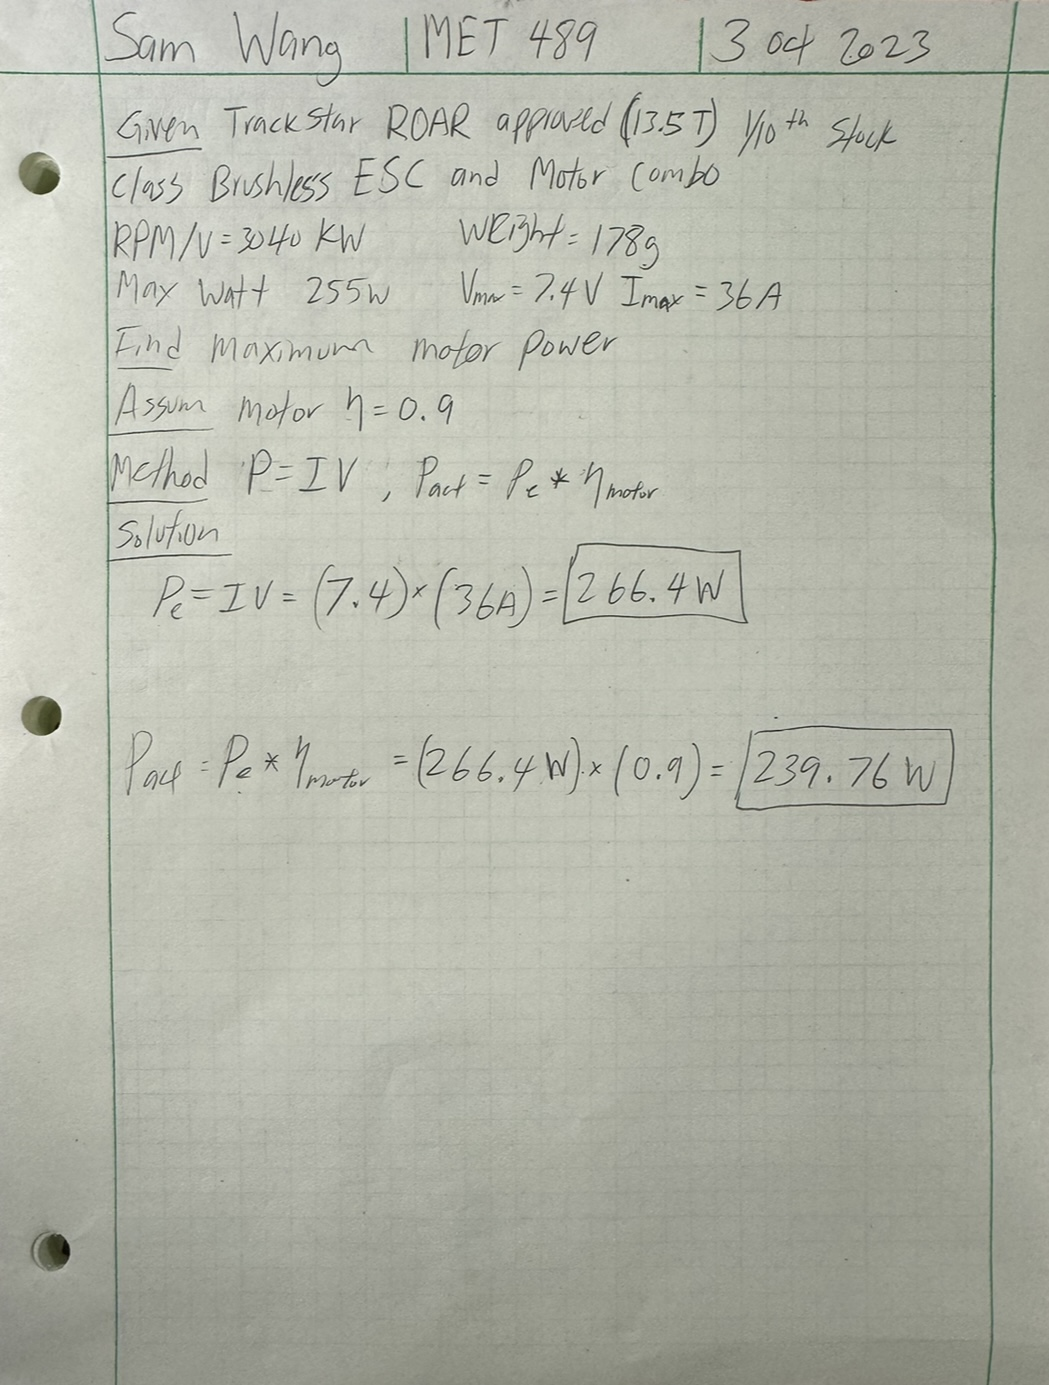 Sam Wang | MET 489 | 3 Oct 2023
Given Trackstar ROAR approved (13.5T) 1/10th Stock
Class Brushless ESC and Motor Combo
RPM/V = 3040 KW Weight = 178g
Max Watt 255W Vmax = 7.4V Imax = 36A
Find maximum motor power
Assum motor η = 0.9
Method P = IV , Pact = Pe * ηmotor
Solution
Pe = IV = (7.4) × (36A) = 266.4 W
Pact = Pe * ηmotor = (266.4 W) × (0.9) = 239.76 W